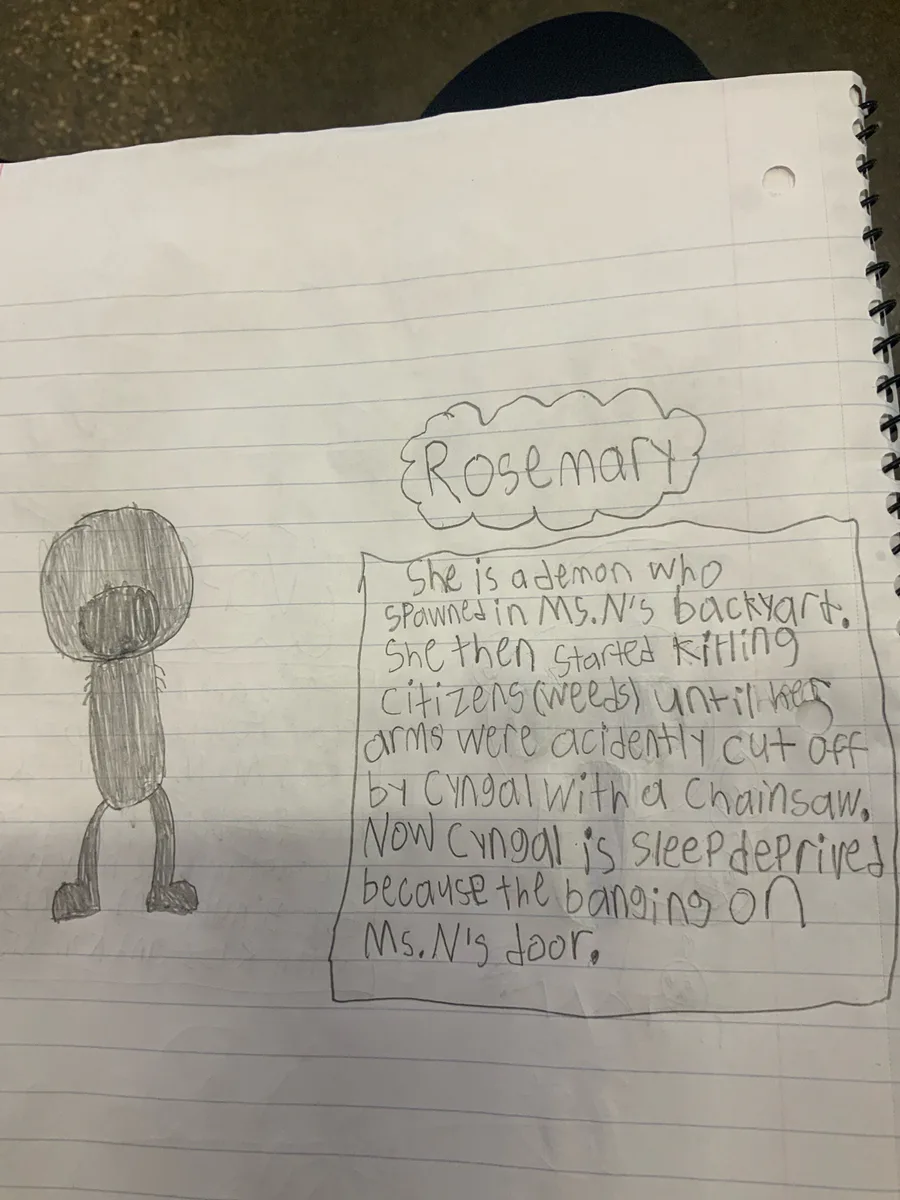 Rosemary
She is a demon who
spawned in Ms.N's backyart.
She then started killing
citizens (weeds) until her
arms were acidently cut off
by Cyngal with a Chainsaw.
Now Cyngal is sleep deprived
because the banging on
Ms.N's door.